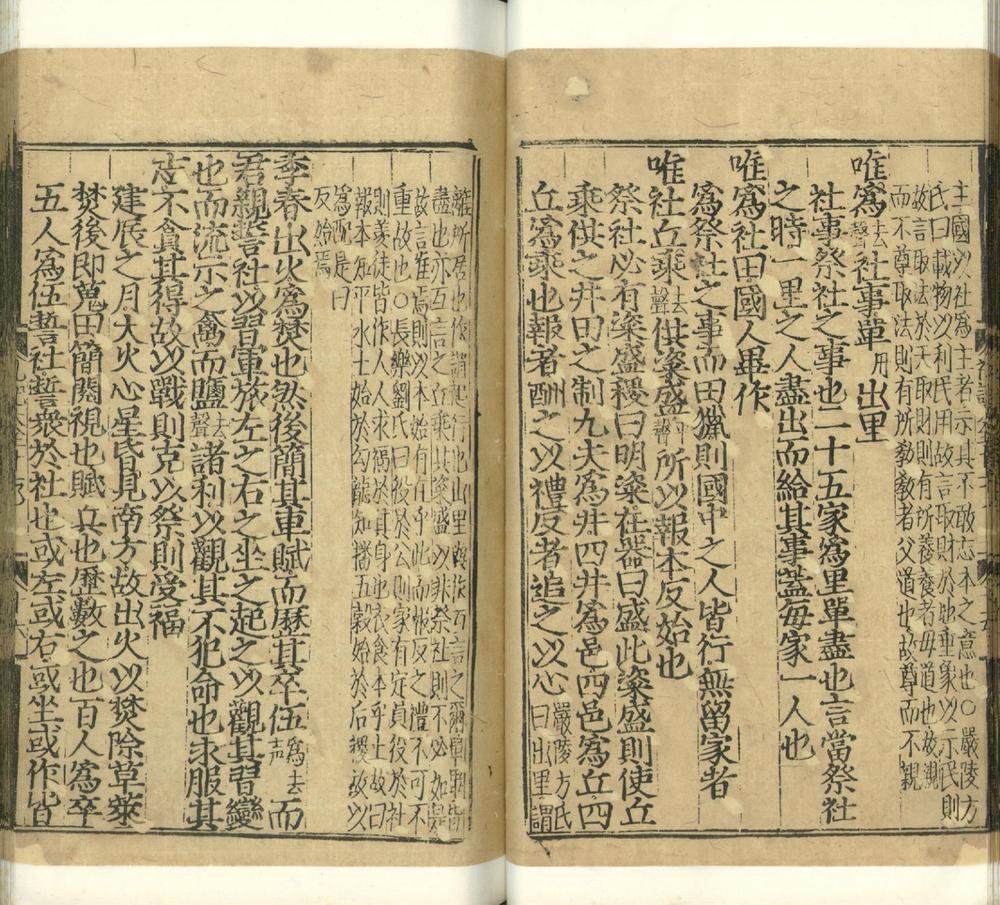 主國以社爲主者示其不敢忘本之意也○嚴陵方
氏曰載物以利民用故言取財於地垂象以示民則
故言取法於天取財則有所養養者母道也故親
而不尊取法則有所敎敎者父道也故尊而不親
唯爲去聲社事單丹出里
社事祭社之事也二十五家爲里單盡也言當祭社
之時一里之人盡出而給其事蓋每家一人也
唯爲社田國人畢作
爲祭社之事而田獵則國中之人皆行無留家者
唯社丘乘去聲供粢盛所以報本反始也
祭社必有粢盛稷曰明粢在器曰盛此粢盛則使丘
乘供之井田之制九夫爲井四井爲邑四邑爲丘四
丘爲乘也報者酬之以禮反者追之以心嚴陵方氏曰出里謂
離所居也作謂起行也出里畢作互言之爾單畢皆
盡也亦互言之丘乘共粢盛以非祭社則不必如是
故言唯焉則以本始有在乎此而報反之禮不可不
重故也○長樂劉氏曰役於公則家有定員役於社
則羨徒皆作人人求福於其身也衣食本乎土故曰
報本焉平水土始於勾龍知播五穀始於后稷故以
爲配是曰
反始焉
季春出火爲焚也然後簡其車賦而歷其卒伍爲去聲而
君親誓社以習軍旅左之右之坐之起之以觀其習變
也而流示之禽而鹽去聲諸利以觀其不犯命也求服其
志不貪其得故以戰則克以祭則受福
建辰之月大火心星昏見南方故出火以焚除草萊
焚後即蒐田簡閱視也賦兵也歷數之也百人爲卒
五人爲伍誓社誓衆於社也或左或右或坐或作皆